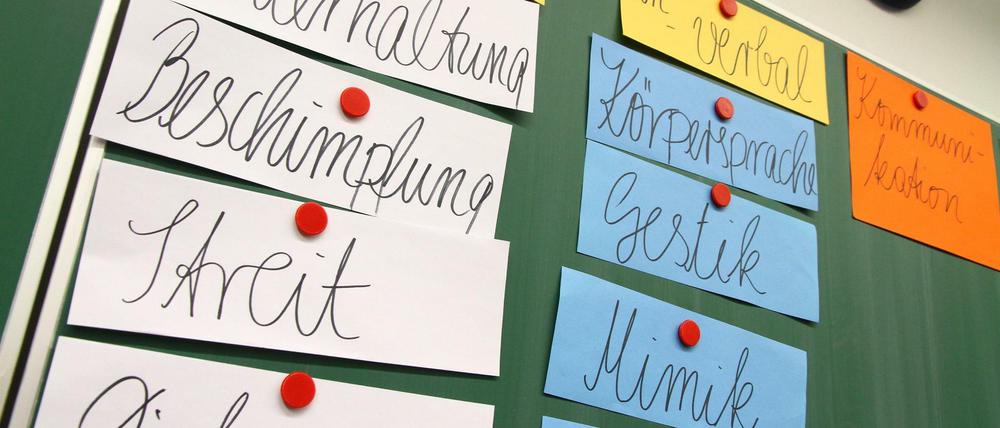 erhaltung
Beschimpfung
Streit
- verbal
Körpersprache
Gestik
Mimik
Kommuni-
kation